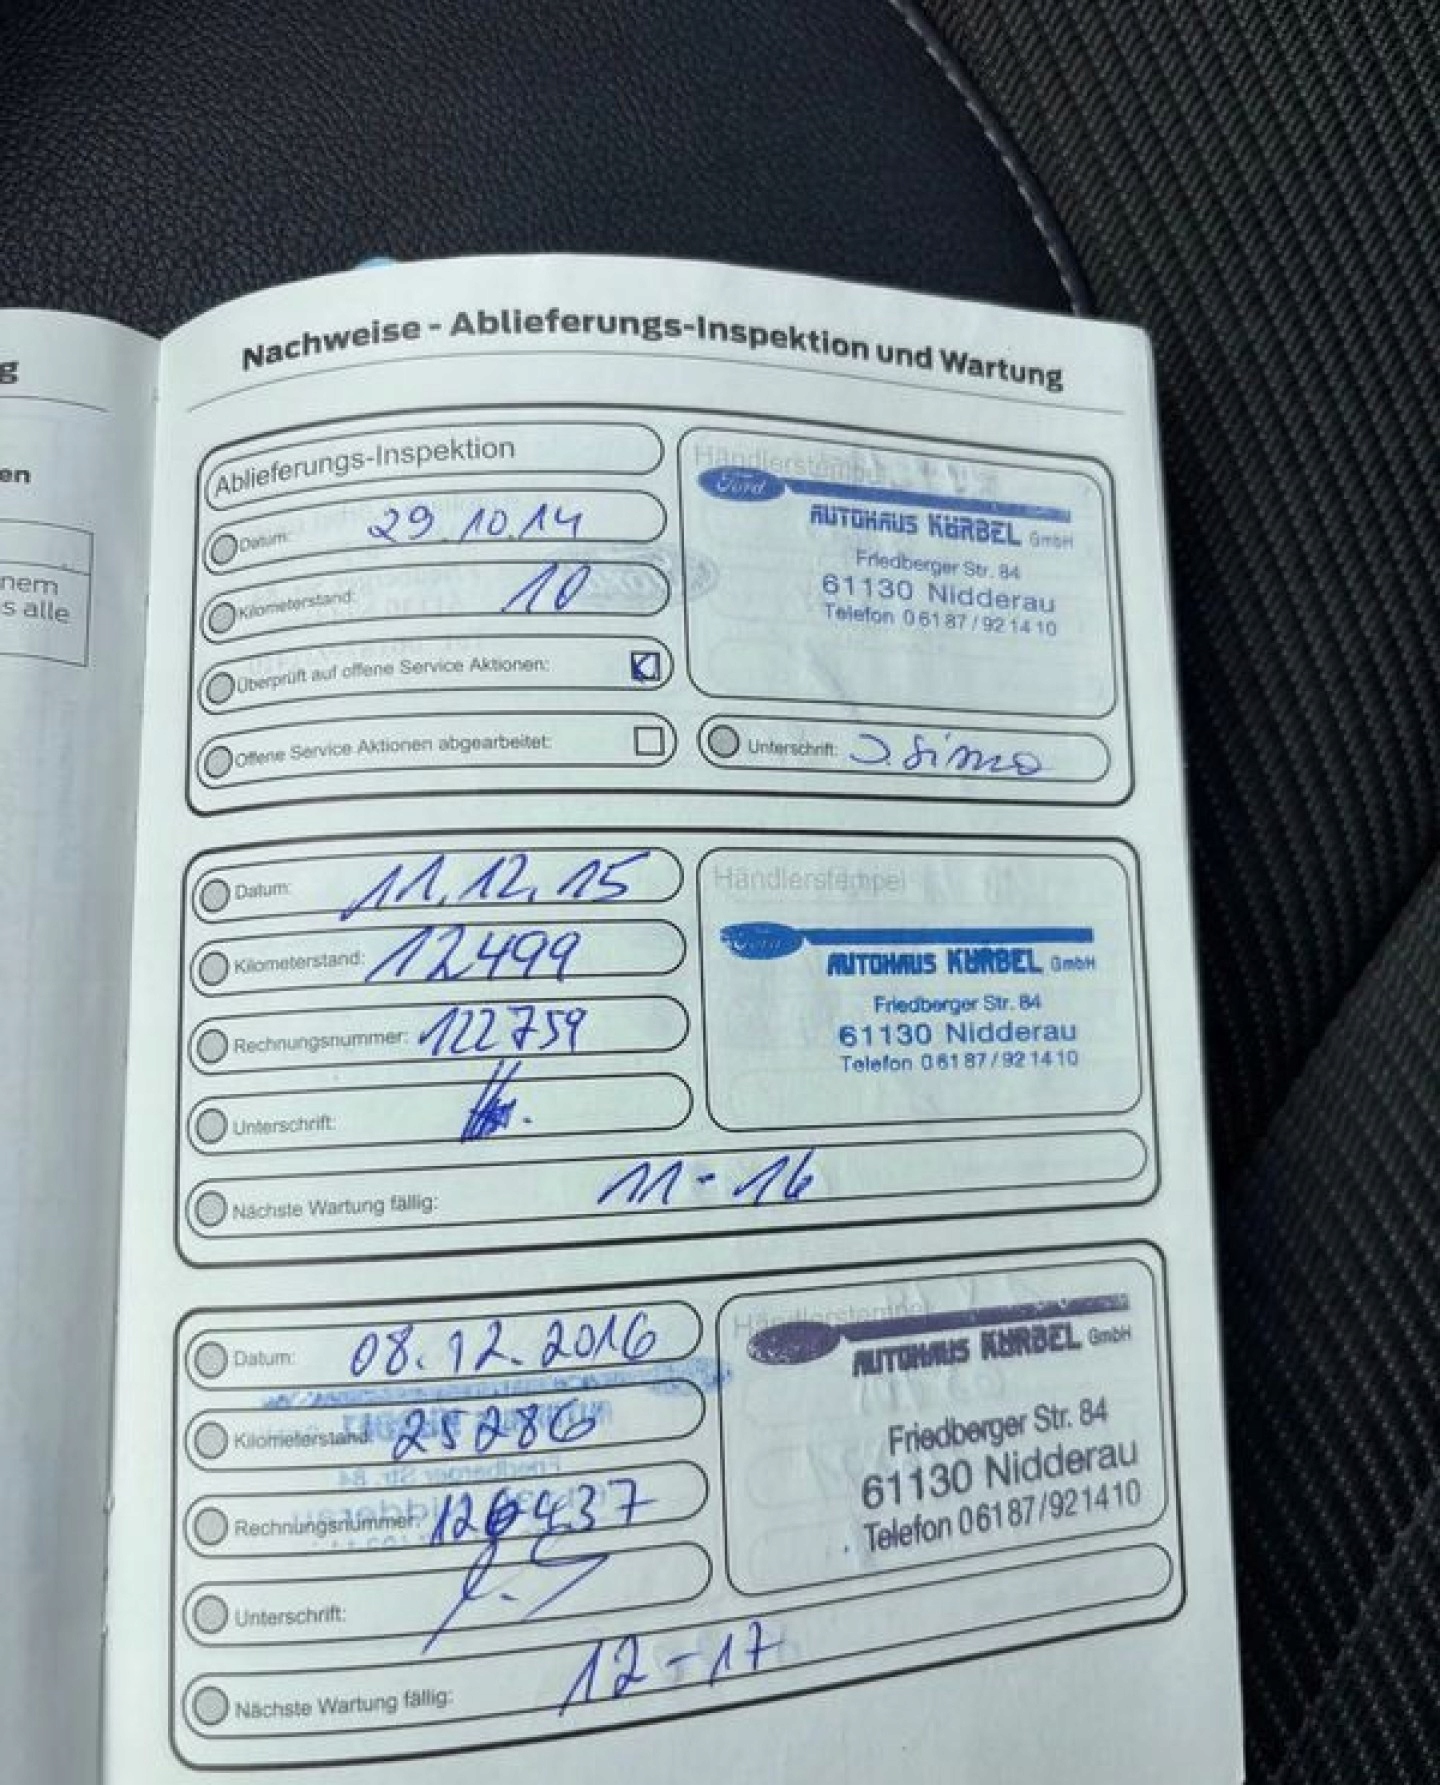 g
en
nem
s alle
Nachweise - Ablieferungs-Inspektion und Wartung
Ablieferungs-Inspektion
Datum: 29.10.14
Kilometerstand: 10
Überprüft auf offene Service Aktionen:
Offene Service Aktionen abgearbeitet:
Händlerstempel
Ford
AUTOHAUS KÜRBEL GmbH
Friedberger Str. 84
61130 Nidderau
Telefon 0 61 87 / 92 14 10
Unterschrift: J. Simao
Datum: 11.12.15
Kilometerstand: 12499
Rechnungsnummer: 122759
Unterschrift:
Nächste Wartung fällig: 11-16
Händlerstempel
Ford
AUTOHAUS KÜRBEL GmbH
Friedberger Str. 84
61130 Nidderau
Telefon 0 61 87 / 92 14 10
Datum: 08.12.2016
Kilometerstand: 25286
Rechnungsnummer: 126437
Unterschrift:
Nächste Wartung fällig: 12-17
Händlerstempel
AUTOHAUS KÜRBEL GmbH
Friedberger Str. 84
61130 Nidderau
Telefon 0 61 87 / 92 14 10